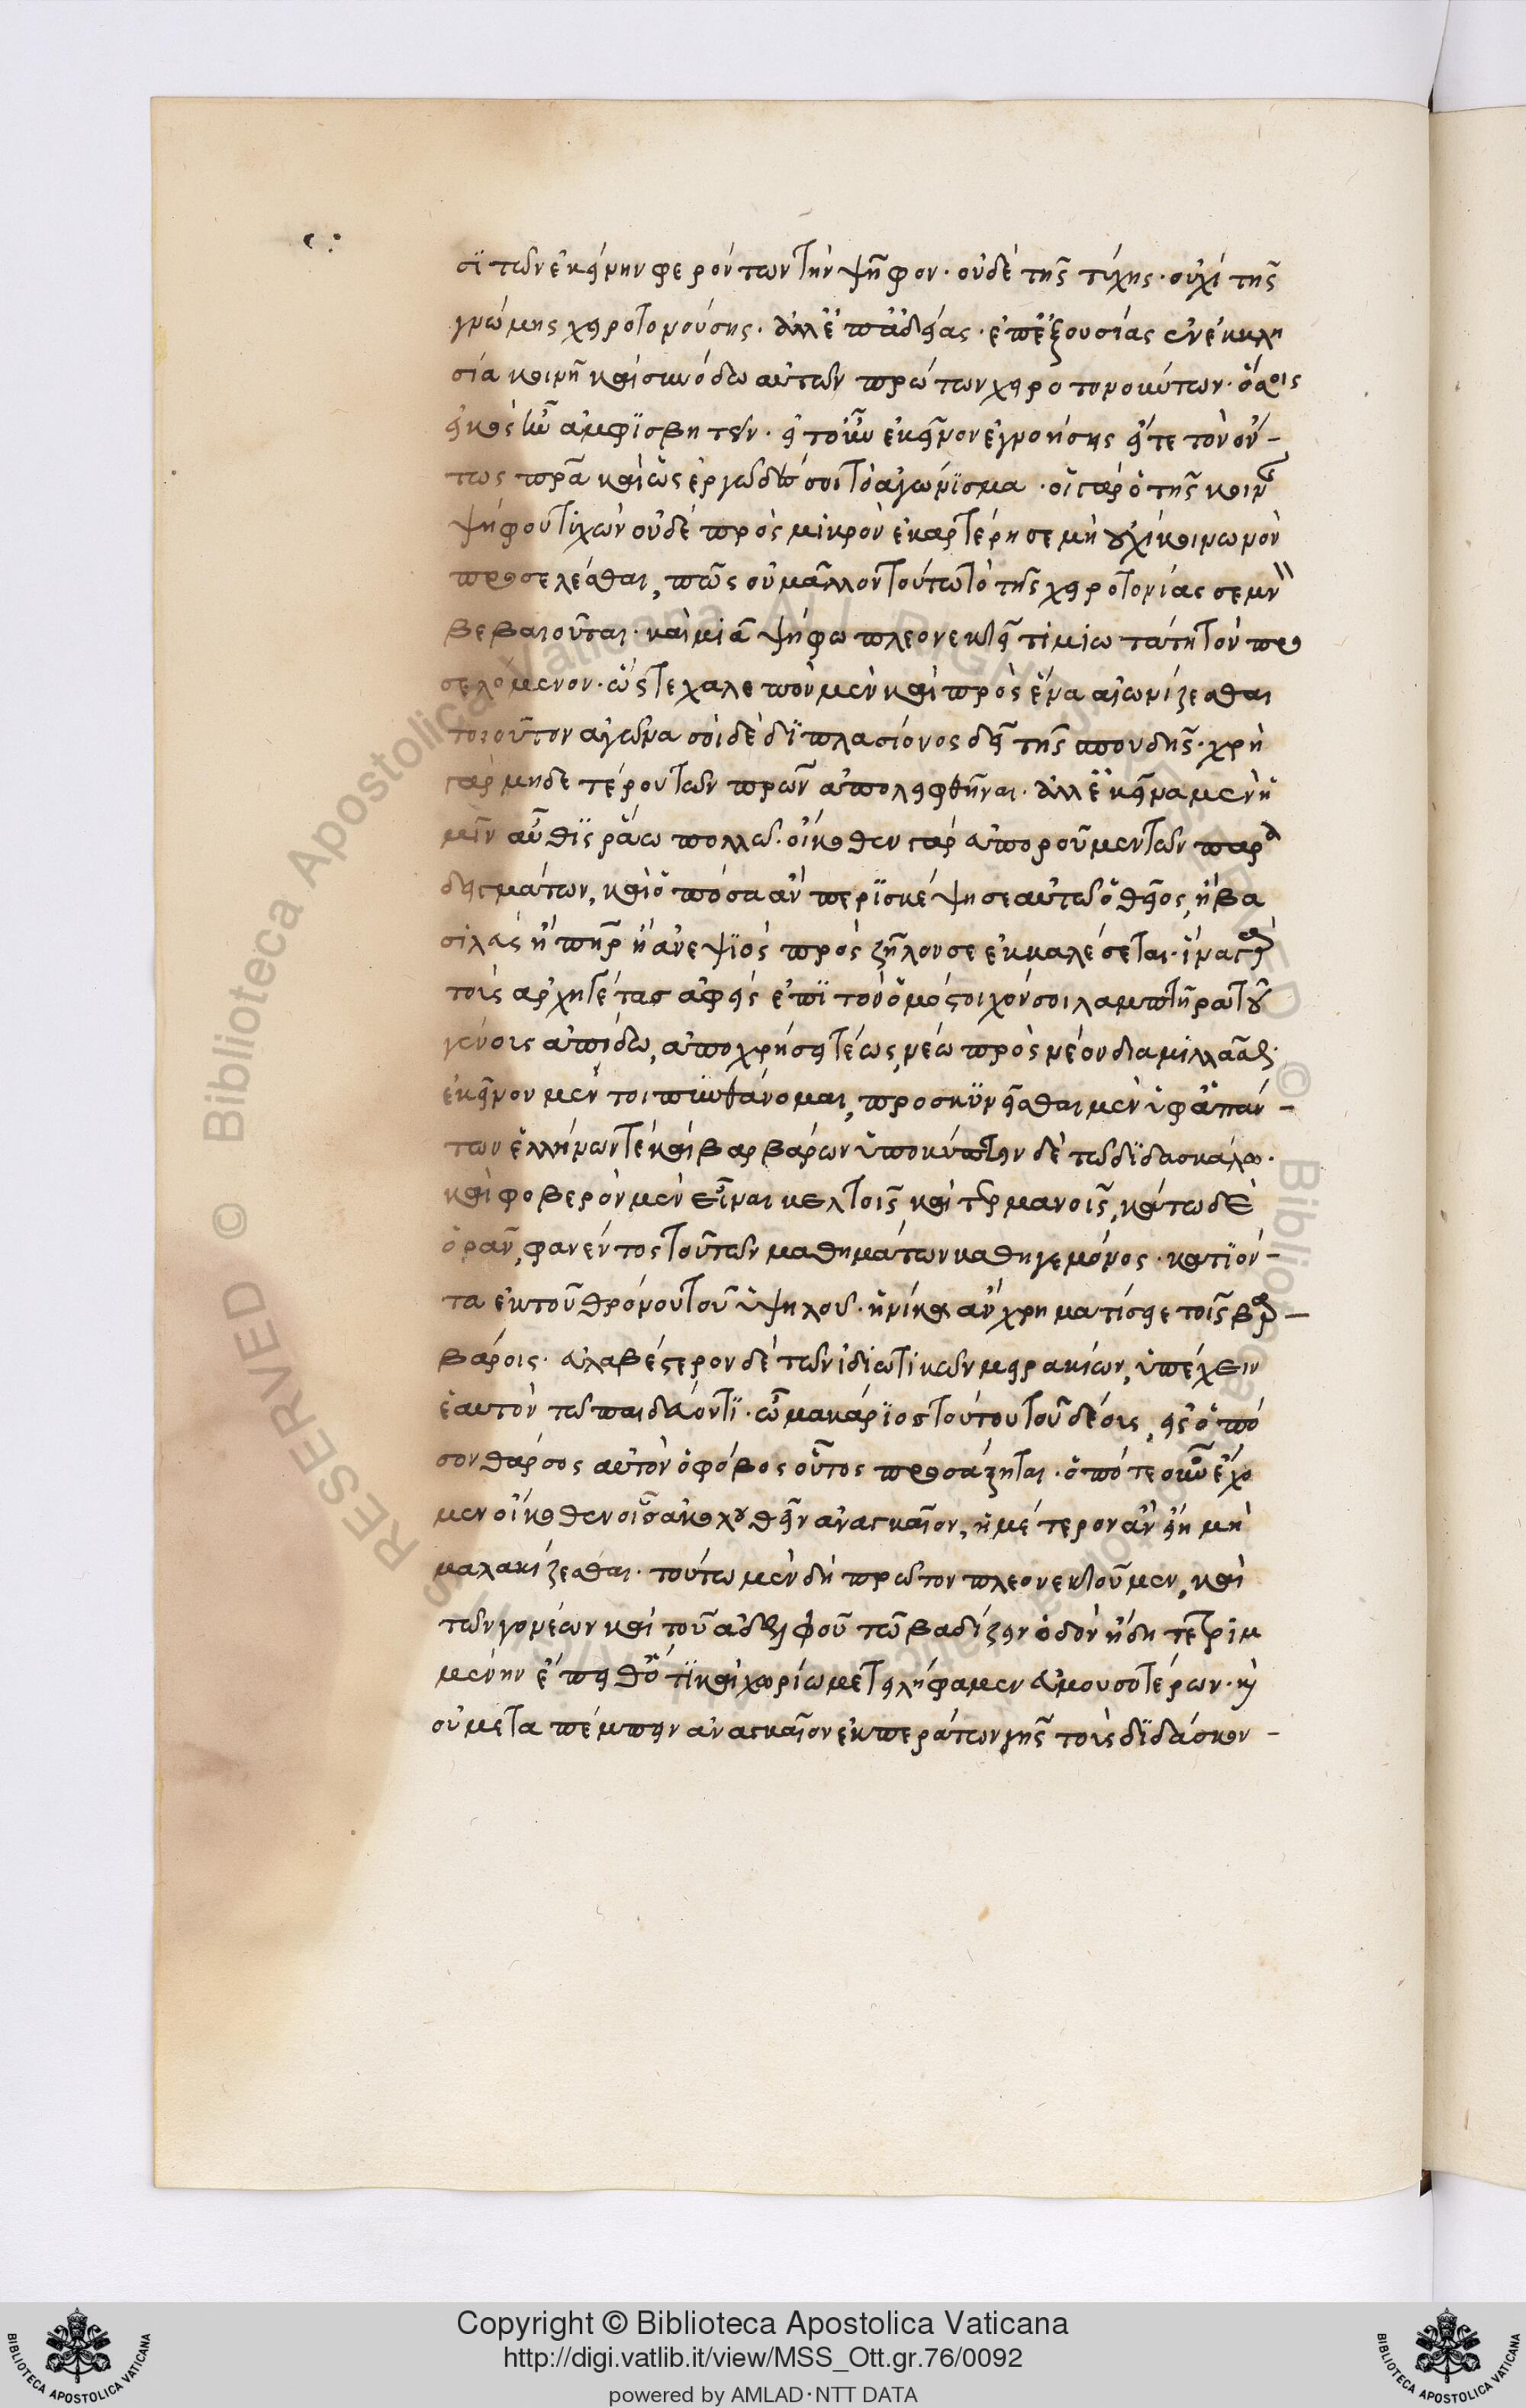 σϊ τῶν ἐκείνην φερόντων τὴν ψῆφον· οὐδὲ τῆς τύχης· οὐχὶ τῆς
γνώμης χειροτονούσης· ἀλλ' ἐπ' ἀδείας· ἐπ' ἐξουσίας ἐν ἐκκλη
σία κοινῆ καὶ συνόδω αὐτῶν πρώτων χειροτονούντων·
ἐκεῖνον ἐγνοήσης εἴτε τὸν ὄν-
τως πρᾶ καὶ ὡς ἐργῶδες σοι τὸ ἀγώνϊσμα· ὃς γὰρ ὁ τῆς κοινῆς
ψήφου τυχὼν οὐδὲ πρὸς μικρὸν ἐκαρτέρησε μὴ οὐχὶ κοινωνὸν
προσελέσθαι, πῶς οὐ μᾶλλον τούτω τὸ τῆς χειροτονίας σεμνὸν
βεβαιοῦται· καὶ μιᾶ ψήφω πλεονεκτεῖ τιμιωτάτη τὸν προ
σελόμενον· ὥστε χαλεπὸν μὲν καὶ πρὸς ἕνα ἀγωνίζεσθαι
τοιοῦτον ἀγῶνα σοὶ δὲ δϊπλασίονος δεῖ τῆς σπουδῆς· χρὴ
γὰρ μηδετέρου τῶν πρῶν ἀπολειφθῆναι. ἀλλ' ἐκεῖνα μὲν ἡ
μῖν αὖθϊς ῥάω πολλῶ· οἴκοθεν γὰρ εὐποροῦμεν τῶν παρα
δειγμάτων, καὶ ὁπόσα ἂν περϊσκέψη σεαυτῶ ὁ θεῖος, ἢ βα
σιλεὺς ἢ πηρ ἢ ἀνεψϊὸς πρὸς ζῆλον σε ἐκκαλέσεται·
τοὺς ἀρχηγέτας ἀφεὶς ἐπϊ τὸν ὁμόστοιχόν σοι λαμπτῆρα τοῦ
γένους ἀπίδω, ἀποχρήσει τέως, νέω πρὸς νέον διαμιλλᾶσθαι·
ἐκεῖνον μέν τοι πυνθάνομαι, προσκϋνεῖσθαι μὲν ὑφ' ἁπάν-
των ἑλλήνων τὲ καὶ βαρβάρων ὑποκύπτειν δὲ τῶ δϊδασκάλω·
καὶ φοβερὸν μὲν εἶναι κελτοῖς καὶ γερμανοῖς, κάτω δὲ
ὁρᾶν, φανέντος τοῦ τῶν μαθημάτων καθηγεμόνος· κατϊόν-
τα ἐκ τοῦ θρόνου τοῦ ὑψηλοῦ· ἡνίκα ἂν χρηματίσειε τοῖς βαρ-
βάροις· εὐλαβέστερον δὲ τῶν ἰδιωτικῶν μειρακίων, ὑπέχειν
ἑαυτὸν τῶ παιδεύοντϊ· ὦ μακάρϊος τούτου τοῦ δέους, εἰς ὁπό
σον θάρσος αὐτὸν ὁ φόβος οὗτος προσάξηται· ὁπότε οὖν ἔχο
μεν οἴκοθεν οἷς ἀκολουθεῖν ἀναγκαῖον, ἡμέτερον ἂν εἴη μὴ
μαλακίζεσθαι· τούτω μὲν δὴ πρῶτον πλεονεκτοῦμεν, καὶ
τῶν γονέων καὶ τοῦ ἀδελφοῦ τῶ βαδίζειν ὁδὸν ἤδη τετριμ
μένην ἔπειθ' ὅτϊ καὶ χωρίω μετειλήφαμεν εὐμουσοτέρων· καὶ
οὐ μεταπέμπειν ἀναγκαῖον ἐκ περάτων γῆς τοὺς δϊδάσκον-
Copyright © Biblioteca Apostolica Vaticana
http://digi.vatlib.it/view/MSS_Ott.gr.76/0092
powered by AMLAD·NTT DATA